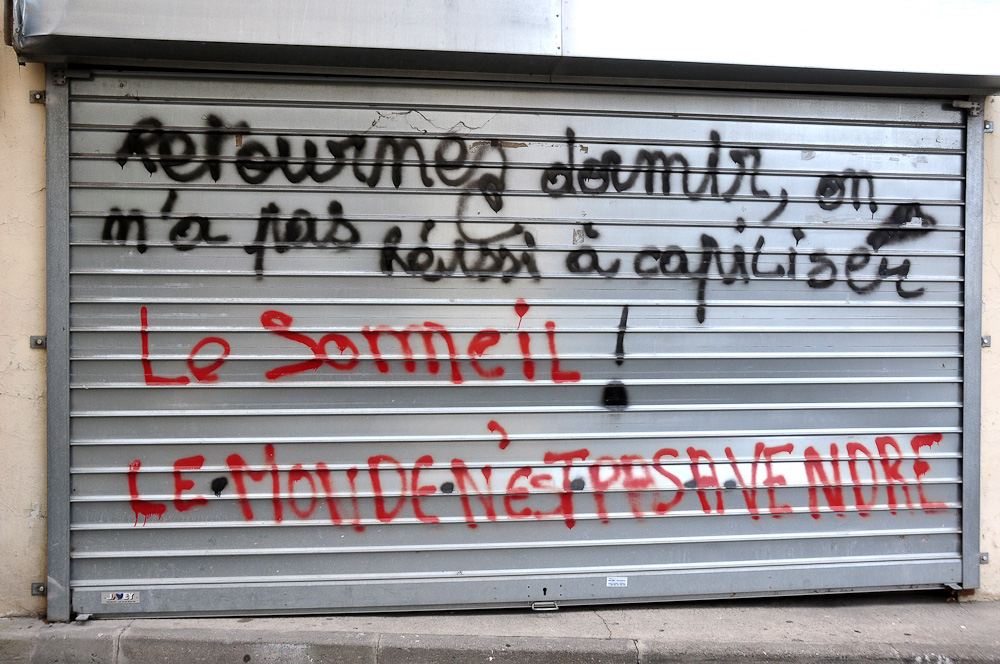 Retournes dormir, on
m'a pas Réussi à capiliser
Le Sommeil !
LE MONDE N'EST PAS A VENDRE